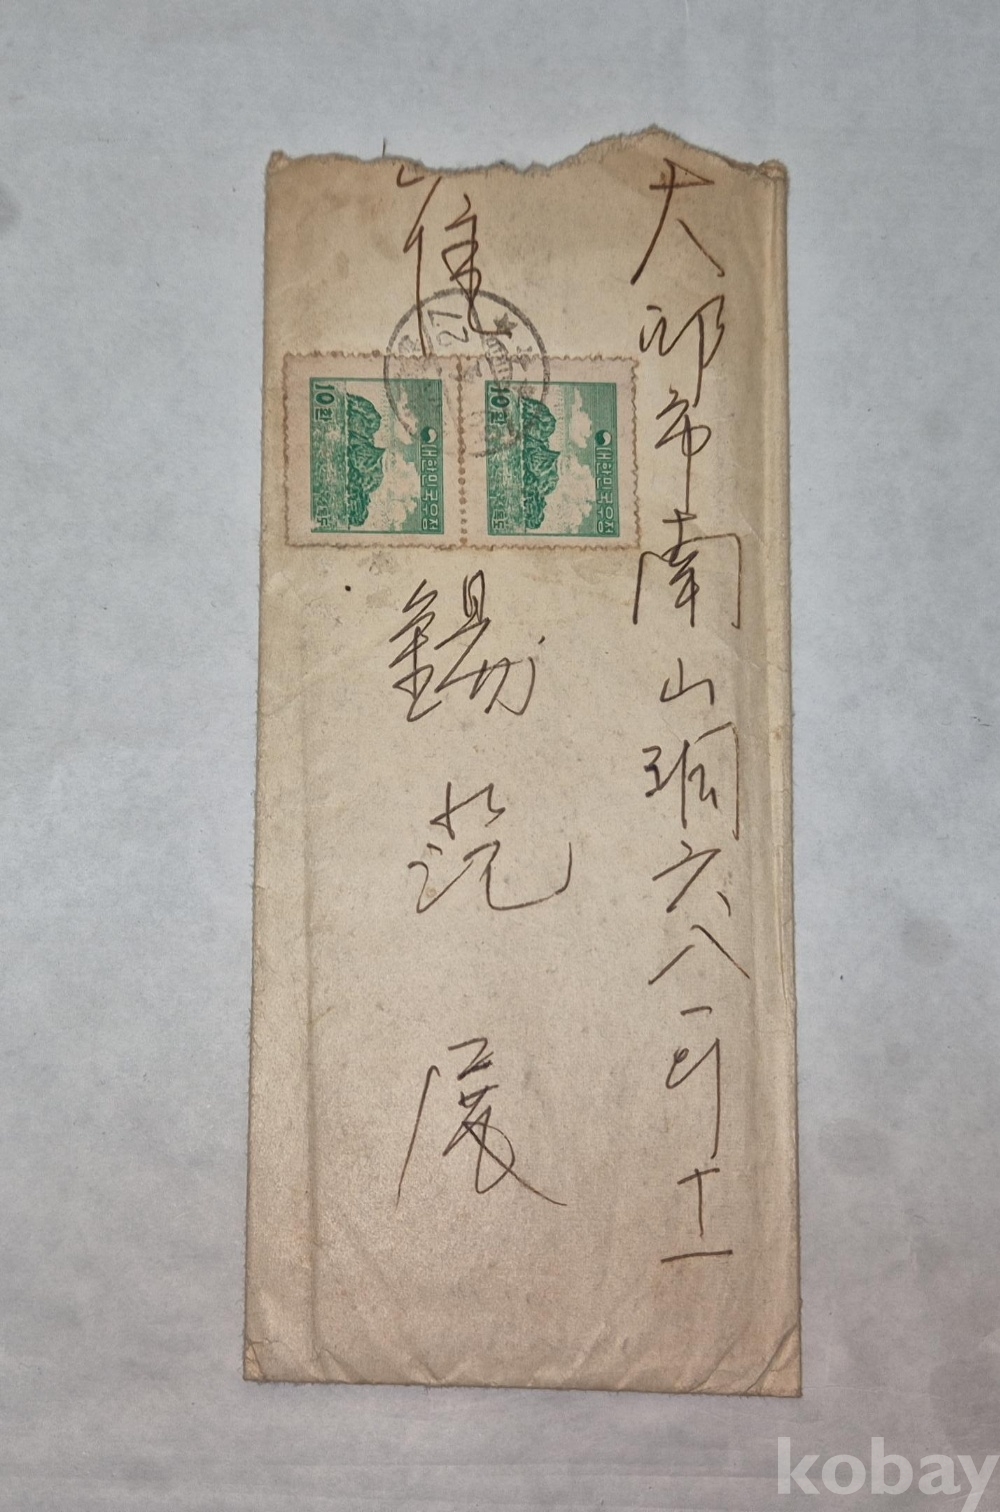 大邱市南山洞六八一의十一
崔錫范 展
10환
대한민국우정
10환
대한민국우정
27
kobay